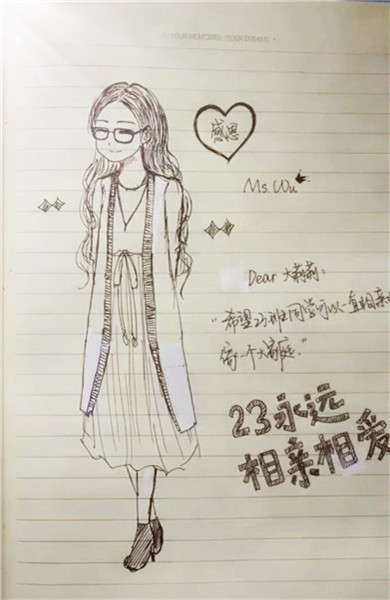 YOUR MEMORIES · YOUR DREAMS
感恩
Ms. Wu
Dear 大莉莉:
"希望23班同学可以一直相亲
一个大家庭."
23永远
相亲相爱